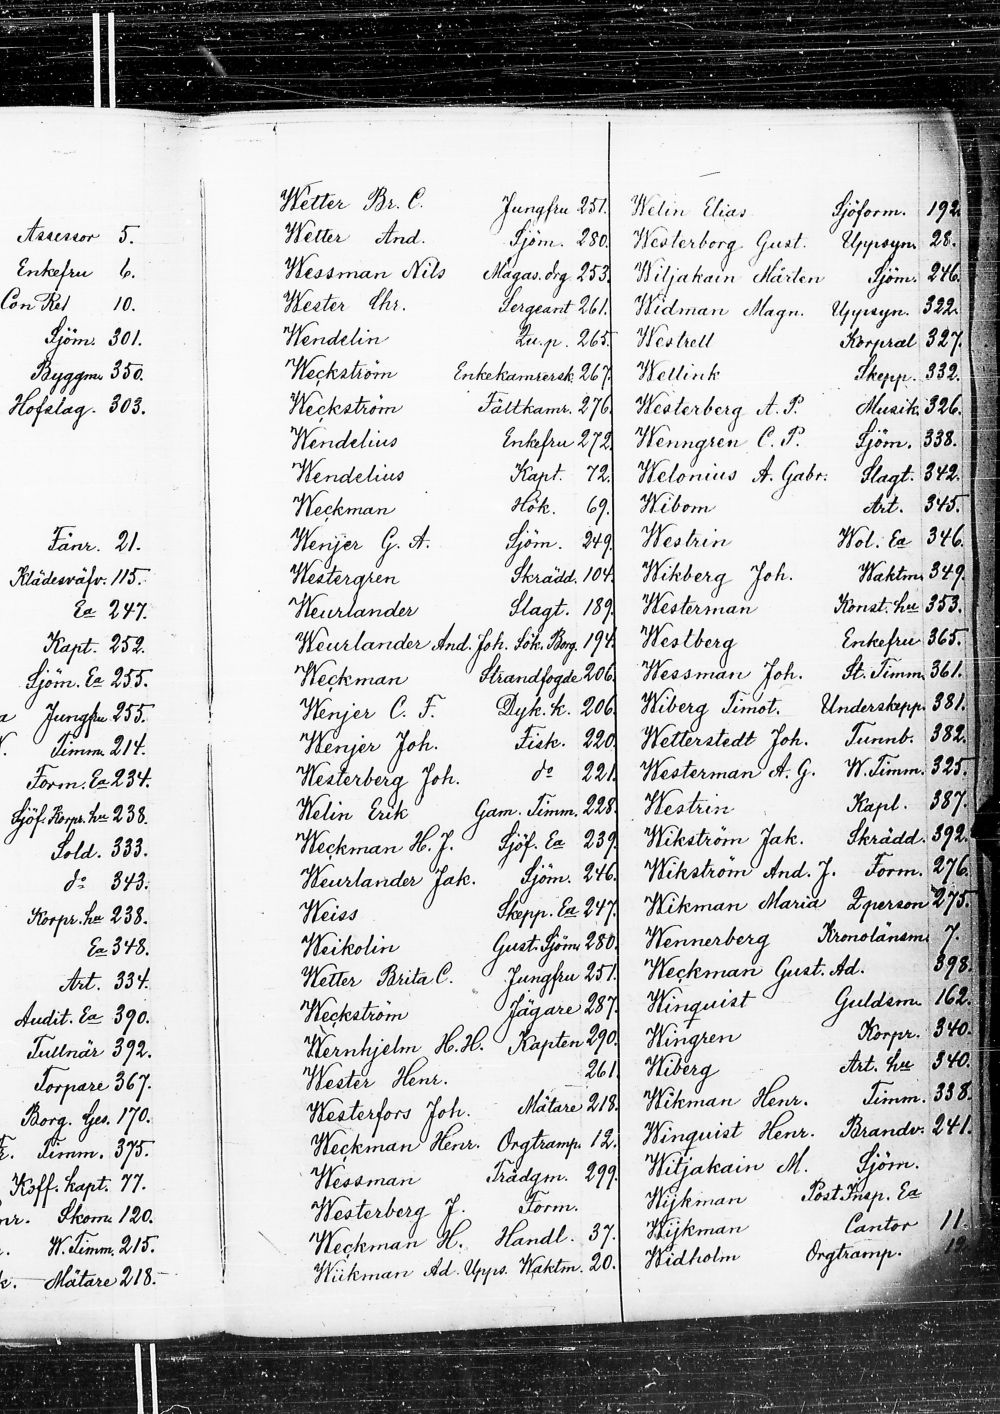 Assessor 5.
Enkefru 6.
Con Ret 10.
Sjöm. 301.
Byggm. 350.
Hofslag. 303.
Fänr. 21.
Klädesväfv. 115.
Ea 247.
Kapt. 252.
Sjöm. Ea 255.
Jungfru 255.
Timm. 214.
Form. Ea 234.
Sjöf. Korpr. hu 238.
Sold. 333.
do 343.
Korpr. hu 238.
Ea 348.
Art. 334.
Audit. Ea 390.
Tullnär 392.
Torpare 367.
Borg. Ges. 170.
Timm. 375.
Koff. kapt. 77.
Skom. 120.
W. Timm. 215.
Mätare 218.
Wetter Br. C. Jungfru 251.
Wetter And. Sjöm. 280.
Wessman Nils Magas. drg 253.
Wester Chr. Sergeant 261.
Wendelin Qu. p. 265.
Weckström Enkekamrersk. 267.
Weckström Fältkamr. 276.
Wendelius Enkefru 272.
Wendelius Kapt. 72.
Weckman Hök. 69.
Wenjer G. A. Sjöm. 249.
Westergren Skrädd. 104.
Weurlander Slagt. 189.
Weurlander And. Joh. Sök. Borg. 194.
Weckman Strandfogde 206.
Wenjer C. F. Dyk. k. 206.
Wenjer Joh. Fisk. 220.
Westerberg Joh. do 221.
Welin Erik Gam. Timm. 228.
Weckman H. J. Sjöf. Ea 239.
Weurlander Jak. Sjöm. 246.
Weiss Skepp. Ea 247.
Weikolin Gust. Sjöm. 280.
Wetter Brita C. Jungfru 251.
Weckström Jägare 287.
Wernhjelm H. H. Kapten 290.
Wester Henr. 261.
Westerfors Joh. Mätare 218.
Weckman Henr. Orgtramp. 12.
Wessman Trädgm. 299.
Westerberg J. Form.
Weckman H. Handl. 37.
Wükman Ad. Upps. Waktm. 20.
Welin Elias Sjöform. 192.
Westerborg Gust. Uppsyn. 28.
Witjakain Mårten Sjöm. 246.
Widman Magn. Uppsyn. 322.
Westrell Korpral 327.
Wellink Skepp. 332.
Westerberg A. P. Musik. 326.
Wenngren C. P. Sjöm. 338.
Welonius A. Gabr. Slagt. 342.
Wibom Art. 345.
Westrin Wol. Ea 346.
Wikberg Joh. Waktm. 349.
Westerman Konst. hu 353.
Westberg Enkefru 365.
Wessman Joh. St. Timm. 361.
Wiberg Timot. Underskepp. 381.
Wetterstedt Joh. Tunnb. 382.
Westerman A. G. W. Timm. 325.
Westrin Kapl. 387.
Wikström Jak. Skrädd. 392.
Wikström And. J. Form. 276.
Wikman Maria Qperson 275.
Wennerberg Kronolänsm. 7.
Weckman Gust. Ad. 398.
Winquist Guldsm. 162.
Wingren Korpr. 340.
Wiberg Art. hu 340.
Wikman Henr. Timm. 338.
Winquist Henr. Brandv. 241.
Witjakain M. Sjöm.
Wijkman Post. Insp. Ea
Wijkman Cantor 11.
Widholm Orgtramp. 12.